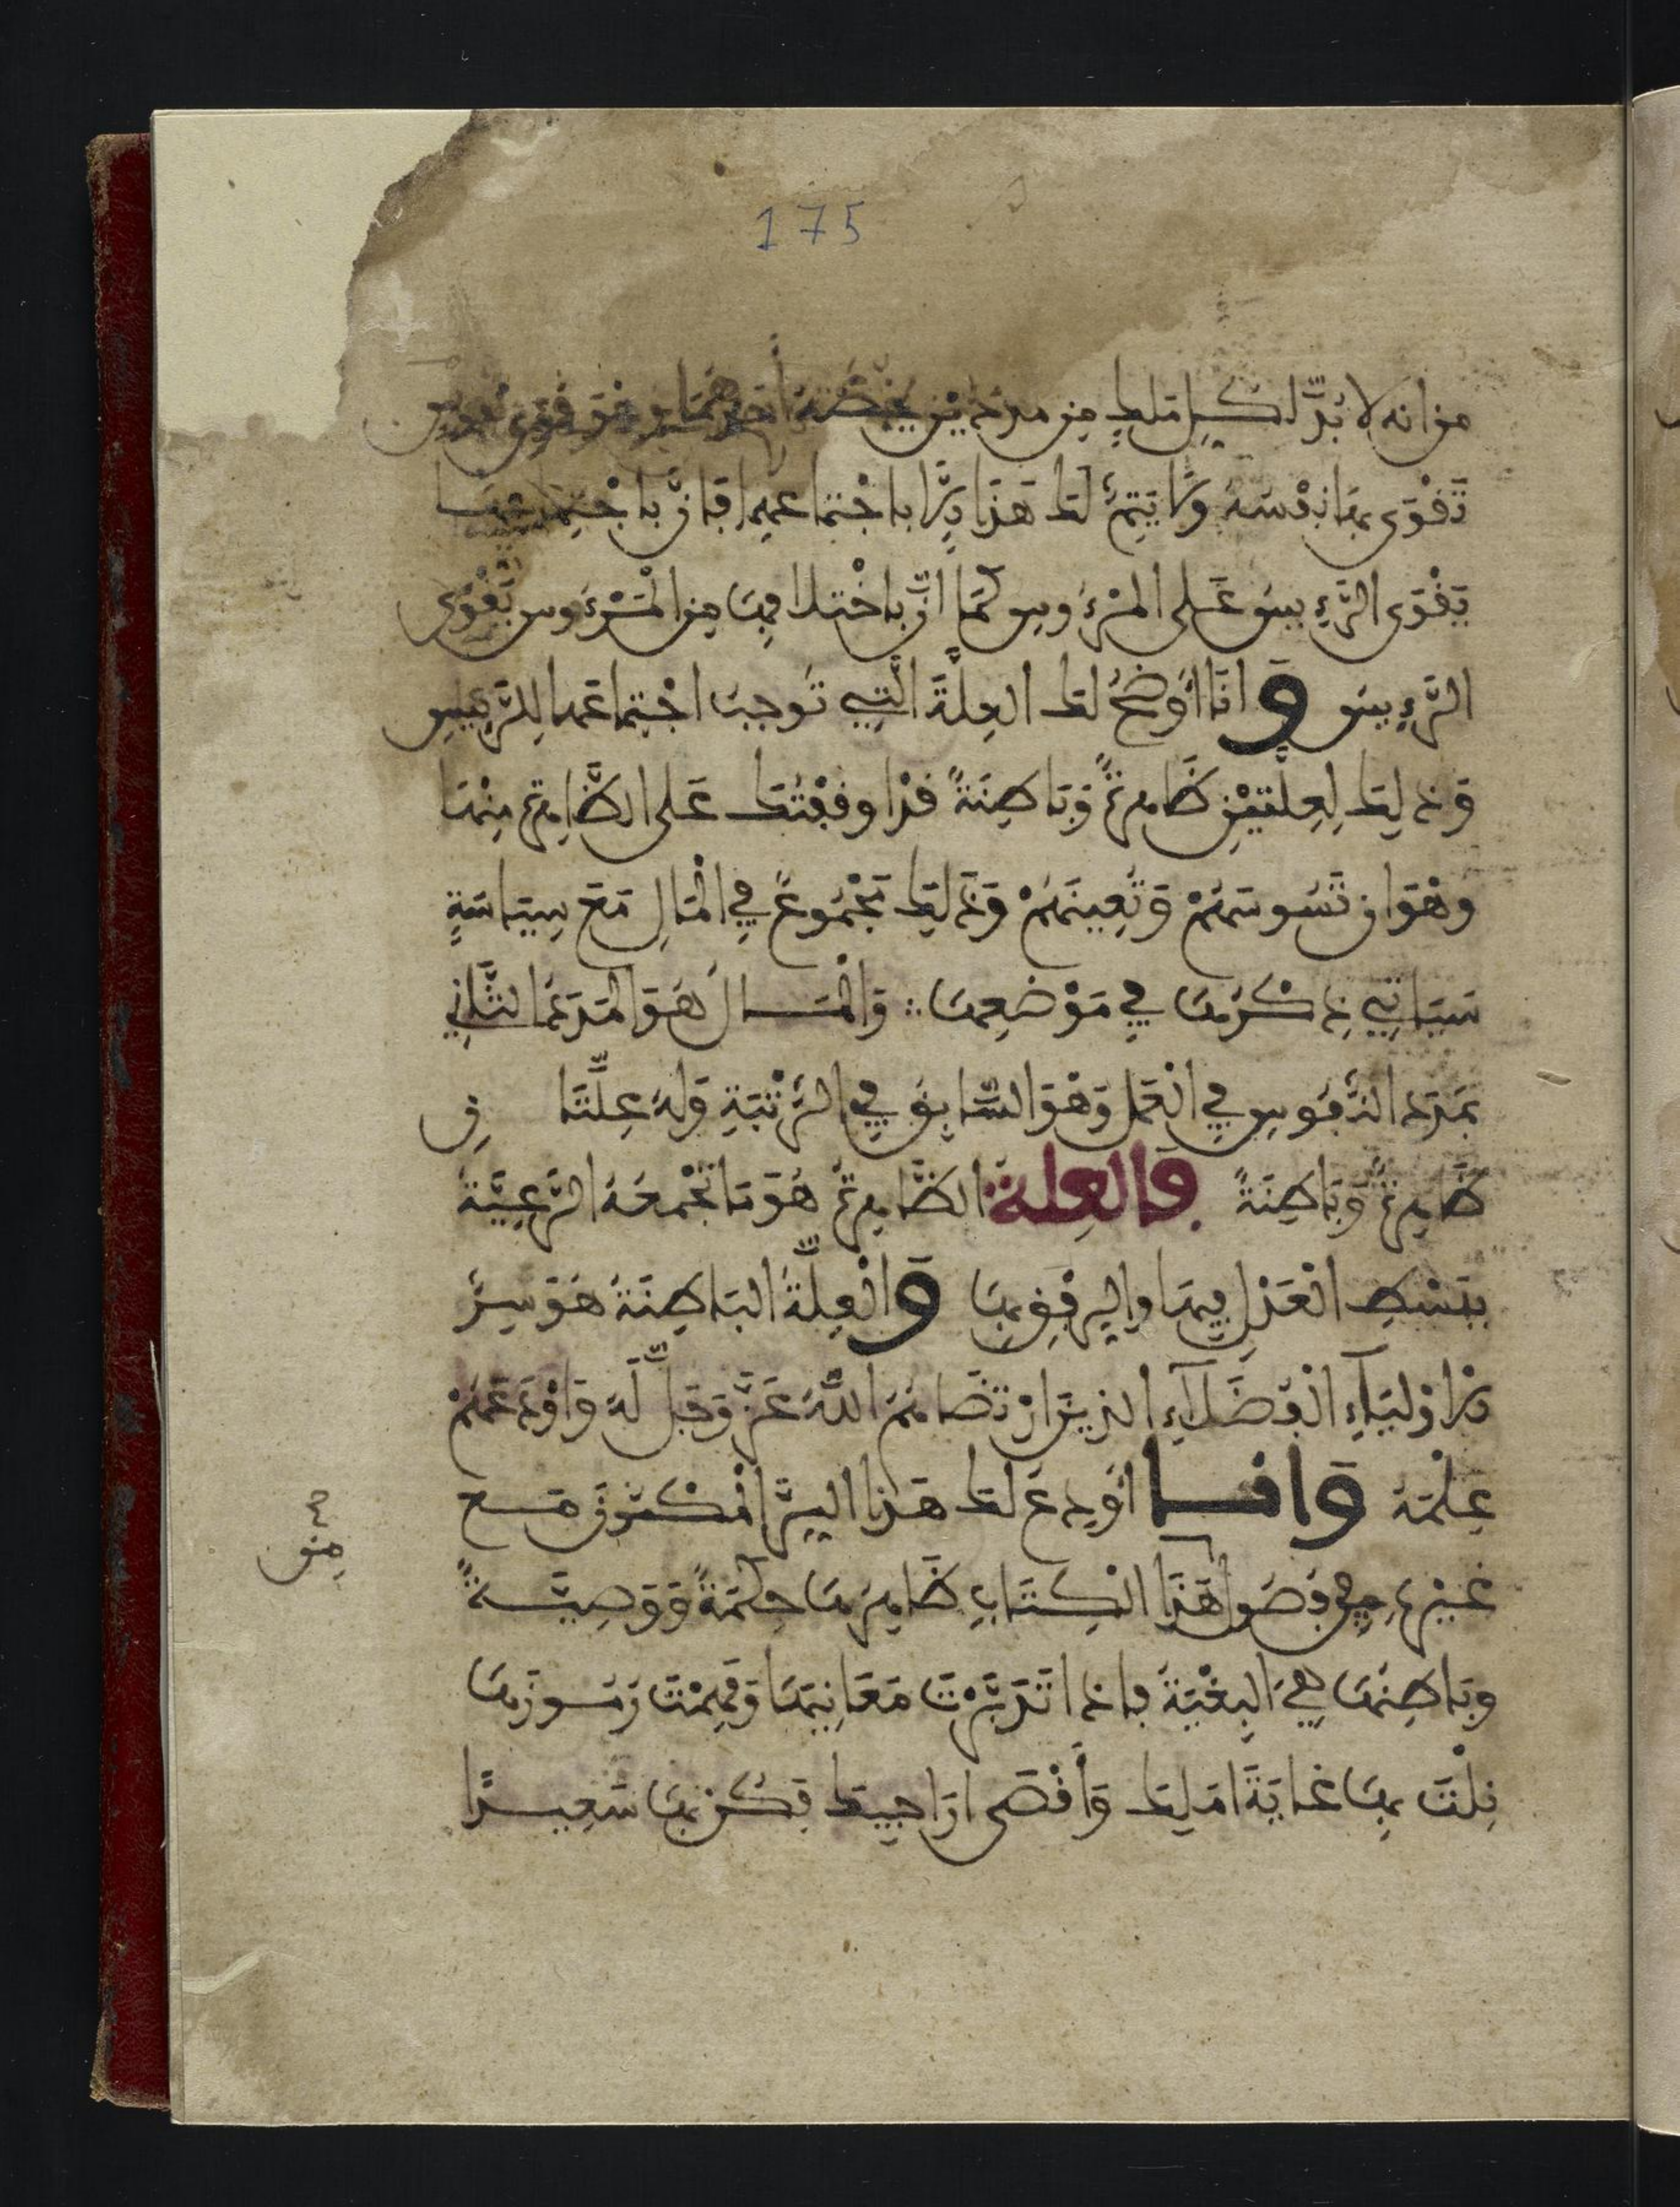 175
من انه لا بُدَّ لكل ملك من مددين يحضرة احدهما وهو قوى نفوس
تَقْوَى بها نفسه ولا يَتِمُّ لك هَذَا إِلَّا باجْتماعهما فَإنَّ باجْتِماعها
يَقْوَى الرَّءيسُ عَلى المرْءُوس كَمَا أنَّ باخْتلافها مِن الْمَرْءُوس يَقْوَى
الرَّءِيسُ وَانَا أُوضِحُ لك العِلَّةَ الَّتِي تُوجِبُ اجْتِماعَهما لِلرَّئِيسِ
وَذلِك لِعِلَّتَيْنِ ظَاهِرةٌ وَبَاطِنَةٌ قدْ اوقفْتُك عَلى الظَّاهِرة مِنْهَا
وهْوَ ان تَسُوسَهُمْ وَتُعِينَهُمْ وَذَلِك مَجْمُوعٌ فِي الْمَالِ مَعَ سِيَاسَةٍ
سَيَاتِي ذِكْرُهَا فِي مَوْضِعِهَا وَالْمَالُ هُوَ المَدَدُ الثَّانِي
بَمَدَد النُّفُوسِ فِي الْعَمَل وَهْوَ السَّابِقُ فِي الرُّتْبَةِ وَلَهُ عِلَّتَانِ
ظَاهِرةٌ وَبَاطِنَةٌ وَالعِلةُ الظَّاهِرةُ هُوَ مَا تَجْمعُهُ الرَّعِيَّةُ
بِبَسْطِ الْعَدْلِ فِيهَا والرِفْقِ بِهَا وَالْعِلَّةُ البَاطِنَةُ هُوَ سِرُّ
الاوْلِيَآءِ الْفُضَلَآءِ الذين ارْتَضَاهُمُ اللهُ عَزَّ وَجَلَّ لَهُ وَاوْدَعَهُمْ
عِلْمَهُ وَانـــا اُودِعُ لك هَذا السِّرَّ الْمكْنون مــع
غَيْرِهِ فِي فُصُول هَذَا الْكِتَابِ ظَاهِرهَا حِكْمَةٌ وَوَصِيَّــةٌ
وبَاطِنُهَا هِيَ الْبُغْيَةُ فاذا تَدَبَّرْتَ مَعَانِيَهَا وَفَهِمْتَ رُمُوزَهَا
نِلْتَ بِهَا غَايَةَ امَلِك وَأَقْصَى ارَاجِيك فَكُنْ بهَا سَعِيــدًا